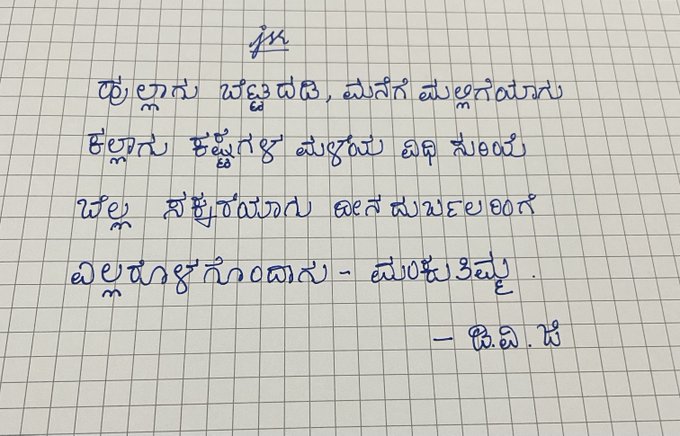 jk
ಹುಲ್ಲಾಗು ಬೆಟ್ಟದಡಿ, ಮನೆಗೆ ಮಲ್ಲಿಗೆಯಾಗು
ಕಲ್ಲಾಗು ಕಷ್ಟಗಳ ಮಳೆಯ ವಿಧಿ ಸುರಿಯೆ
ಬೆಲ್ಲ ಸಕ್ಕರೆಯಾಗು ದೀನ ದುರ್ಬಲರಿಂಗೆ
ಎಲ್ಲರೊಳಗೊಂದಾಗು - ಮಂಕುತಿಮ್ಮ .
- ಡಿ.ವಿ.ಜಿ